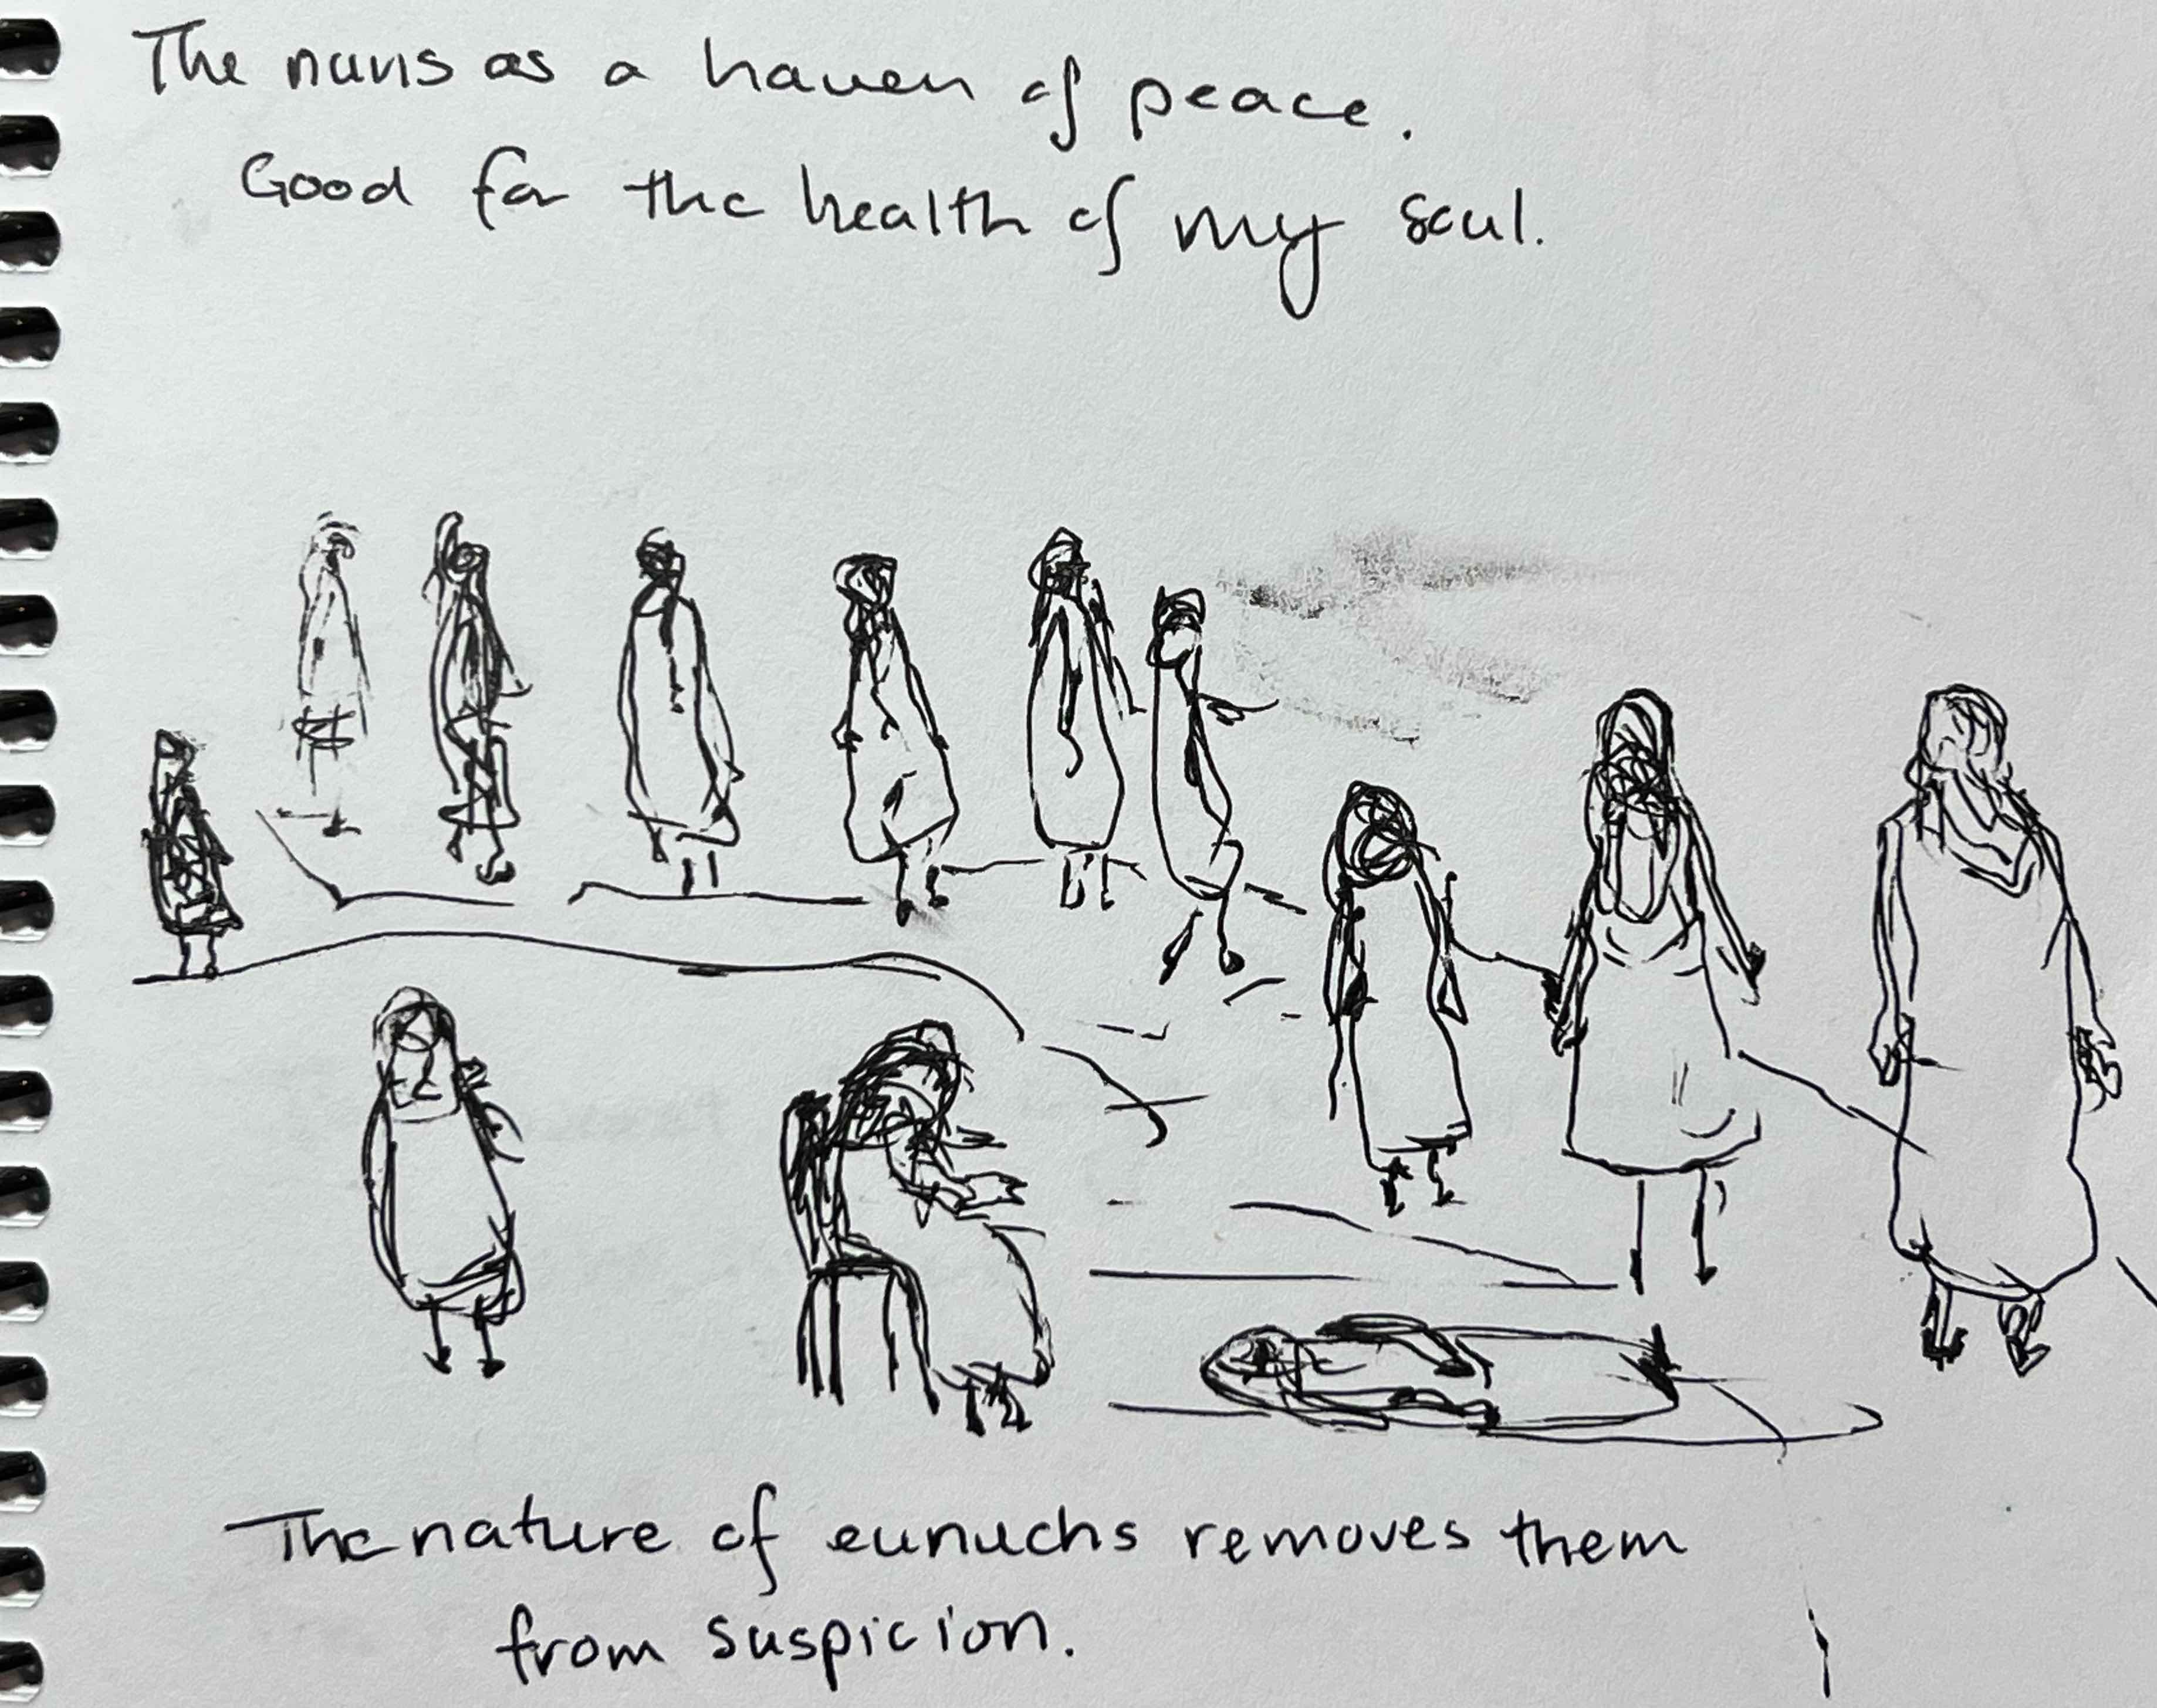 The nuns as a haven of peace.
Good for the health of my soul.
The nature of eunuchs removes them
from suspicion.